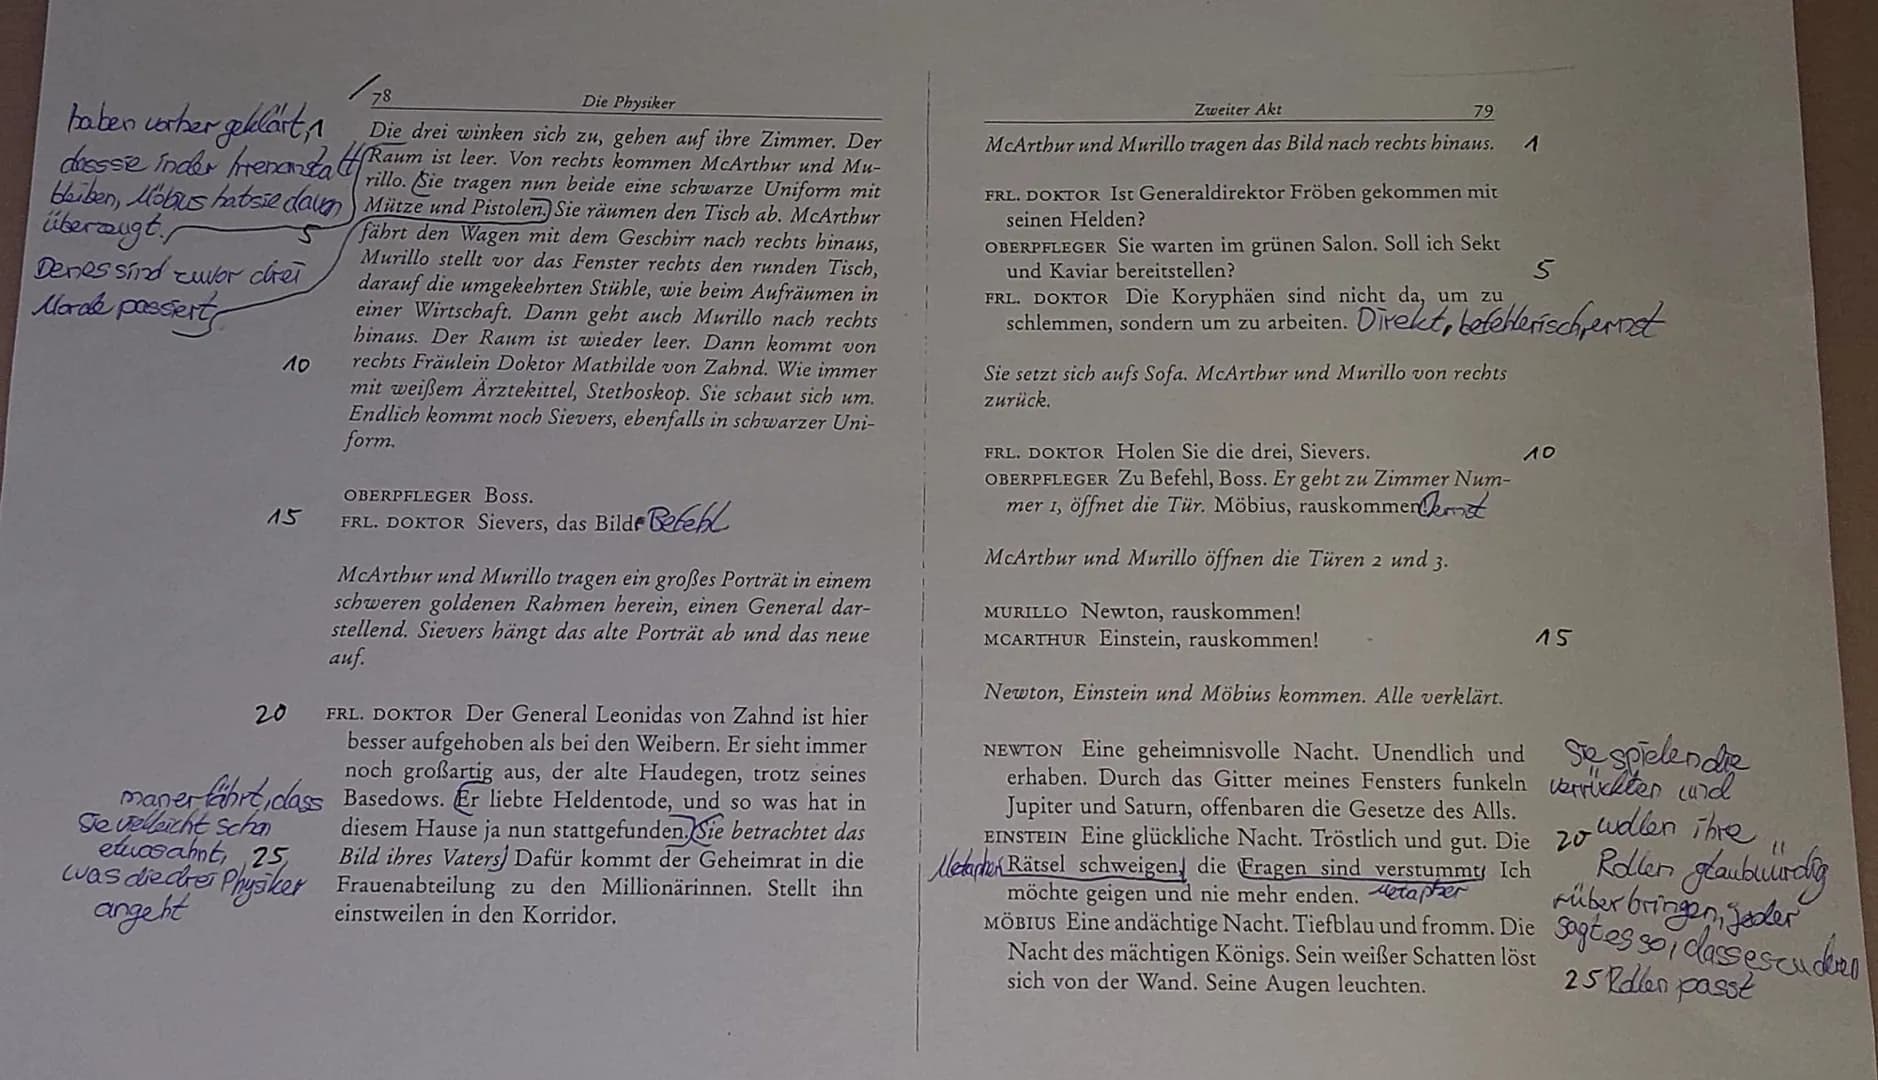 78 Die Physiker
haben vorher geklärt,
dass sie in der Irrenanstalt
bleiben, Möbius hat sie davon
überzeugt.
Denes sind zuvor drei
Morde passiert
1
Die drei winken sich zu, gehen auf ihre Zimmer. Der
Raum ist leer. Von rechts kommen McArthur und Mu-
rillo. Sie tragen nun beide eine schwarze Uniform mit
Mütze und Pistolen. Sie räumen den Tisch ab. McArthur
5 fährt den Wagen mit dem Geschirr nach rechts hinaus,
Murillo stellt vor das Fenster rechts den runden Tisch,
darauf die umgekehrten Stühle, wie beim Aufräumen in
einer Wirtschaft. Dann geht auch Murillo nach rechts
hinaus. Der Raum ist wieder leer. Dann kommt von
10 rechts Fräulein Doktor Mathilde von Zahnd. Wie immer
mit weißem Ärztekittel, Stethoskop. Sie schaut sich um.
Endlich kommt noch Sievers, ebenfalls in schwarzer Uni-
form.
OBERPFLEGER Boss.
15 FRL. DOKTOR Sievers, das Bild. Befehl
McArthur und Murillo tragen ein großes Porträt in einem
schweren goldenen Rahmen herein, einen General dar-
stellend. Sievers hängt das alte Porträt ab und das neue
auf.
20 FRL. DOKTOR Der General Leonidas von Zahnd ist hier
besser aufgehoben als bei den Weibern. Er sieht immer
noch großartig aus, der alte Haudegen, trotz seines
Basedows. Er liebte Heldentode, und so was hat in
diesem Hause ja nun stattgefunden. Sie betrachtet das
25 Bild ihres Vaters. Dafür kommt der Geheimrat in die
Frauenabteilung zu den Millionärinnen. Stellt ihn
einstweilen in den Korridor.
man erfährt, dass
Sie velleicht schon
etwas ahnt,
was die drei Physiker
angeht
Zweiter Akt 79
McArthur und Murillo tragen das Bild nach rechts hinaus. 1
FRL. DOKTOR Ist Generaldirektor Fröben gekommen mit
seinen Helden?
OBERPFLEGER Sie warten im grünen Salon. Soll ich Sekt
und Kaviar bereitstellen? 5
FRL. DOKTOR Die Koryphäen sind nicht da, um zu
schlemmen, sondern um zu arbeiten. Direkt, befehlerisch, ernst
Sie setzt sich aufs Sofa. McArthur und Murillo von rechts
zurück.
FRL. DOKTOR Holen Sie die drei, Sievers. 10
OBERPFLEGER Zu Befehl, Boss. Er geht zu Zimmer Num-
mer 1, öffnet die Tür. Möbius, rauskommen! ernst
McArthur und Murillo öffnen die Türen 2 und 3.
MURILLO Newton, rauskommen!
MCARTHUR Einstein, rauskommen! 15
Newton, Einstein und Möbius kommen. Alle verklärt.
NEWTON Eine geheimnisvolle Nacht. Unendlich und
erhaben. Durch das Gitter meines Fensters funkeln
Jupiter und Saturn, offenbaren die Gesetze des Alls.
EINSTEIN Eine glückliche Nacht. Tröstlich und gut. Die 20
Metapher Rätsel schweigen, die Fragen sind verstummt. Ich
möchte geigen und nie mehr enden. Metapher
MÖBIUS Eine andächtige Nacht. Tiefblau und fromm. Die
Nacht des mächtigen Königs. Sein weißer Schatten löst
sich von der Wand. Seine Augen leuchten. 25
Sie spielen die
verrückten und
wollen ihre
Rollen glaubwürdig
rüberbringen, jeder
sagt es so, dass es zu deren
Rollen passt